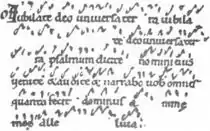 Iubilate deo universa ter ra iubila
te deo universa ter
ra psalmum dicite nomini eius
venite & audite & narrabo vob omnis
quanta fecit dominus a nime
me alle luia